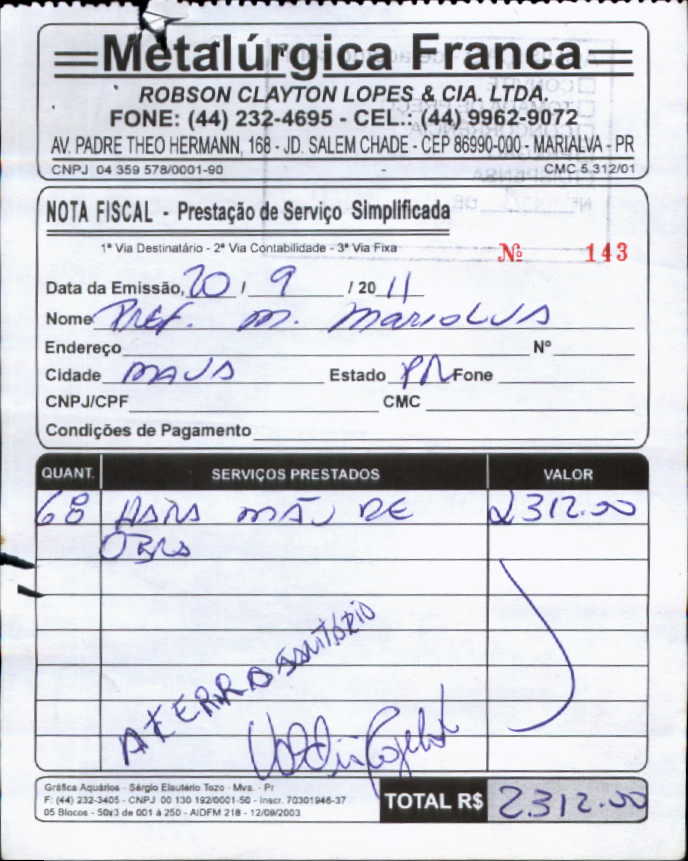 Metalúrgica Franca
ROBSON CLAYTON LOPES & CIA. LTDA.
FONE: (44) 232-4695 - CEL.: (44) 9962-9072
AV. PADRE THEO HERMANN, 168 - JD. SALEM CHADE - CEP 86990-000 - MARIALVA - PR
CNPJ 04 359 578/0001-90 CMC 5.312/01
NOTA FISCAL - Prestação de Serviço Simplificada
1ª Via Destinatário - 2ª Via Contabilidade - 3ª Via Fixa
Nº 143
Data da Emissão, 20 / 9 / 20 11
Nome PREF. M. MARIALVA
Endereço Nº
Cidade MAVA Estado PR Fone
CNPJ/CPF CMC
Condições de Pagamento
QUANT. SERVIÇOS PRESTADOS VALOR
68 HARA MÃO DE 2312.00
OBRA
ATERRO SANITÁRIO
Gráfica Aquários - Sérgio Elautério Tozo - Mva. - Pr
F: (44) 232-3405 - CNPJ 00 130 192/0001-50 - Inscr. 70301946-37
05 Blocos - 50x3 de 001 à 250 - AIDFM 218 - 12/09/2003
TOTAL R$ 2312.00